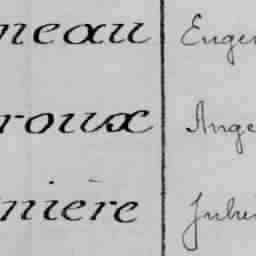 neau Eugen
roux Ange
nière Juli